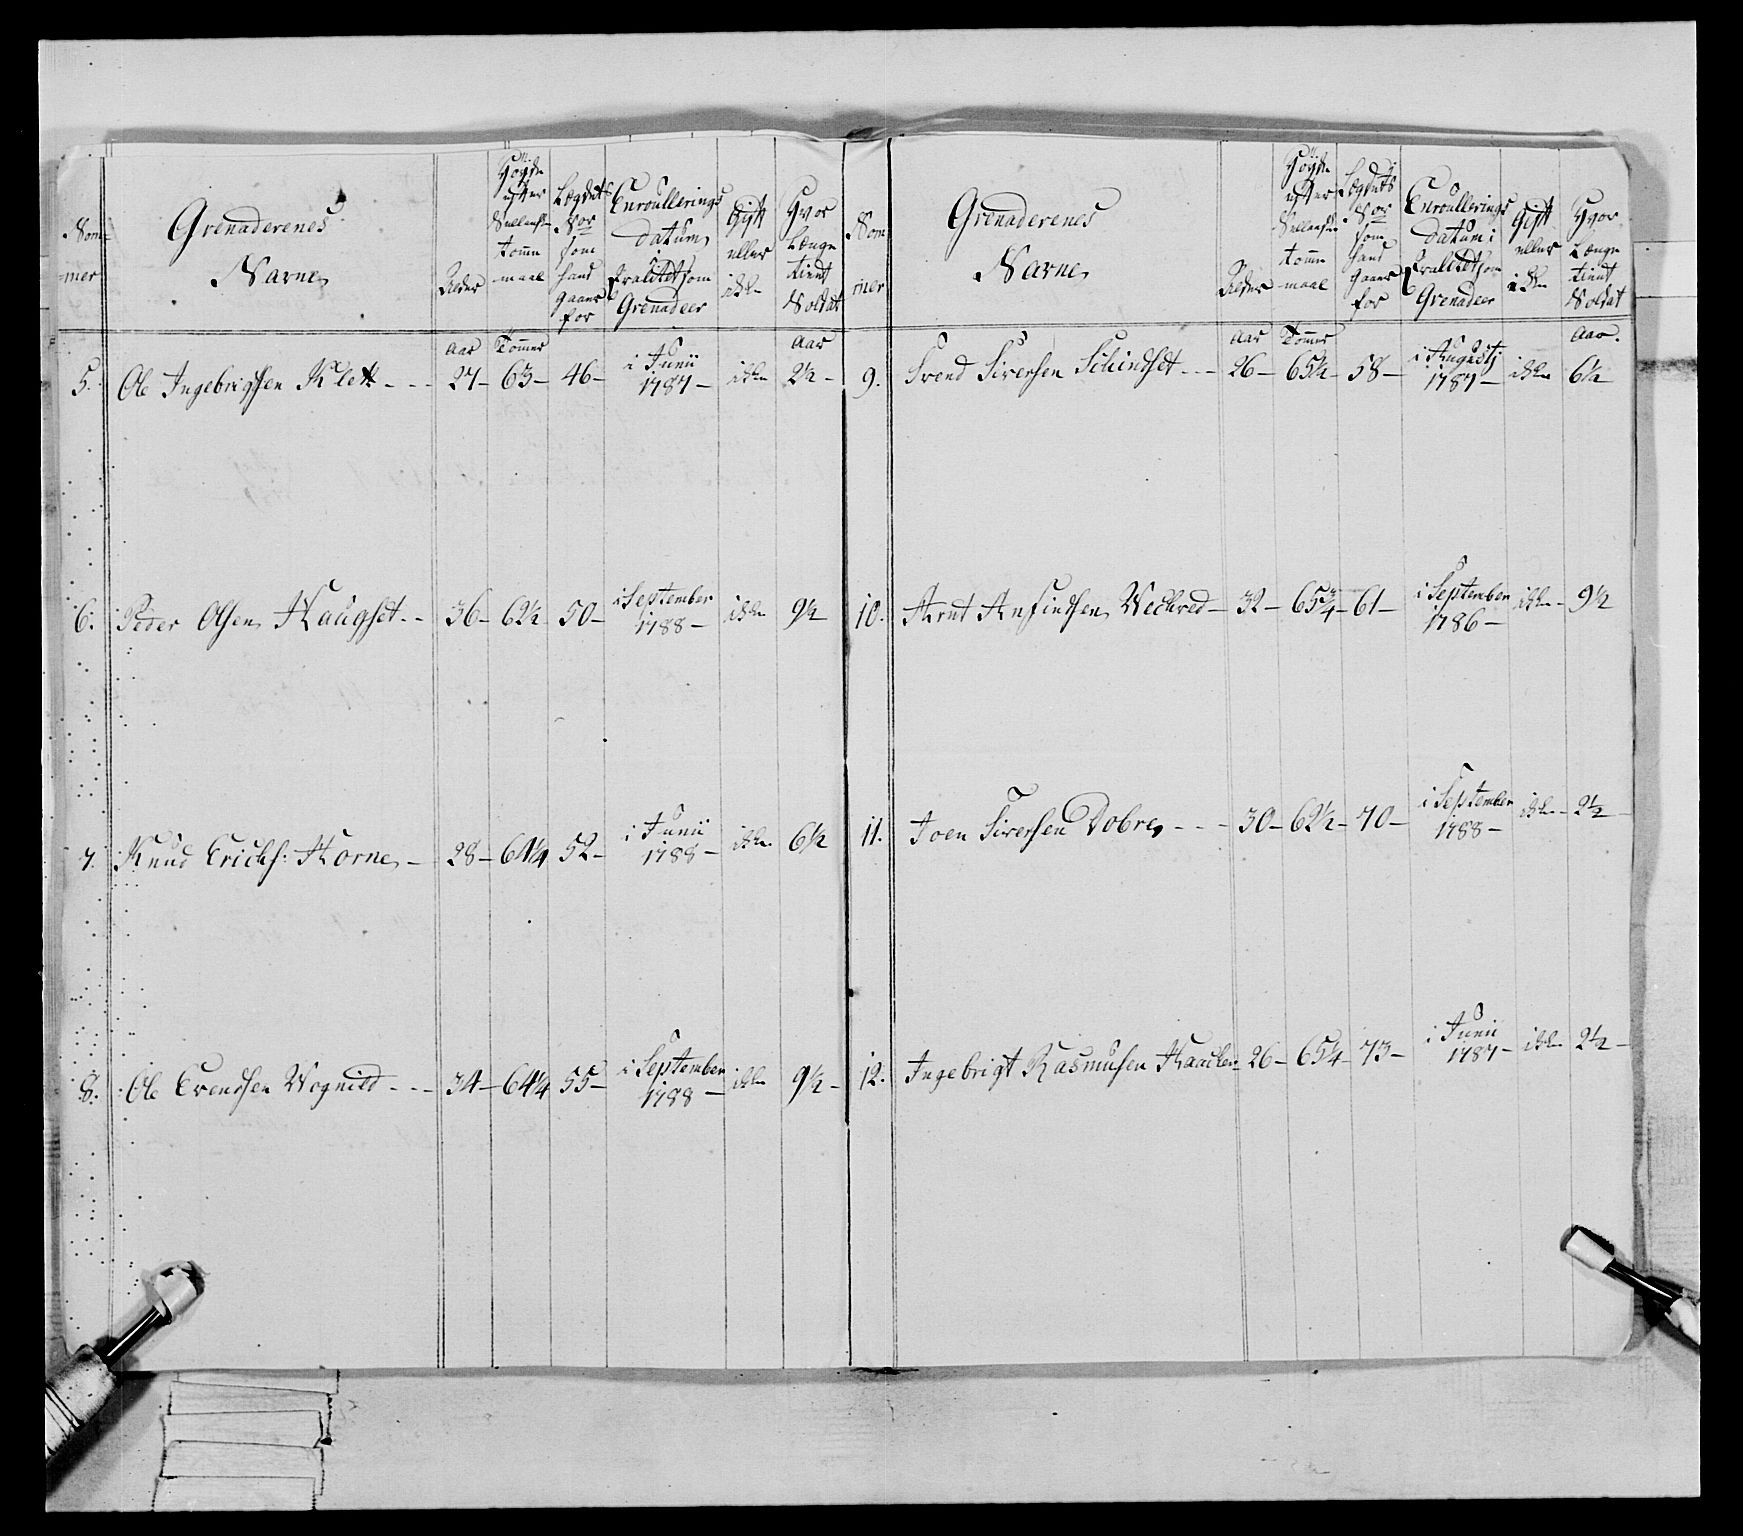 Nom
mer
Grenaderenes
Navne
Alder
Höyde
efter
Sællandsk
tomme
maal
Lægdets
Nor
som
hand
gaaer
for
Enroullerings
datum i
Qvalitet som
Grenadeer
Gift
eller
ikke
Hvor
Længe
tient
Soldat
Aar Tommer Aar
5. Ole Ingebrigtsen Klett - - - 27 - 63 - 46 - i Junii 1787 - ikke 2½ -
6. Peder Olsen Haugset - - 36 - 62½ 50 - i September 1788 - ikke 9½
7. Knud Erichs: Horne - 28 - 64¼ 52 - i Junii 1788 - ikke 6½
8. Ole Evendsen Wognild - - - 34 - 64¼ 55 - i September 1788 - ikke 9½ -
Nom
mer
Grenaderenes
Navne
Alder
Höyde
efter
Sællandsk
tomme
maal
Lægdets
Nor
som
hand
gaaer
for
Enroullerings
datum i
Qvalitet som
Grenadeer
Gift
eller
ikke
Hvor
Længe
tient
Soldat
Aar Tommer Aar.
9. Svend Siversen Schindset - - - 26 - 65½ - 58 - i Augustj 1787 - ikke 6½
10. Arnt Anfindsen Weckred - 32 - 65¾ - 61 - i September 1786 - ikke - 9½
11. Joen Siversen Dobre - - - 30 - 62½ - 70 - i September 1788 - ikke - 2½ -
12. Ingebrigt Rasmusen Haacken - 26 - 65¼ - 73 - i Junii 1787 - ikke - 2½ -